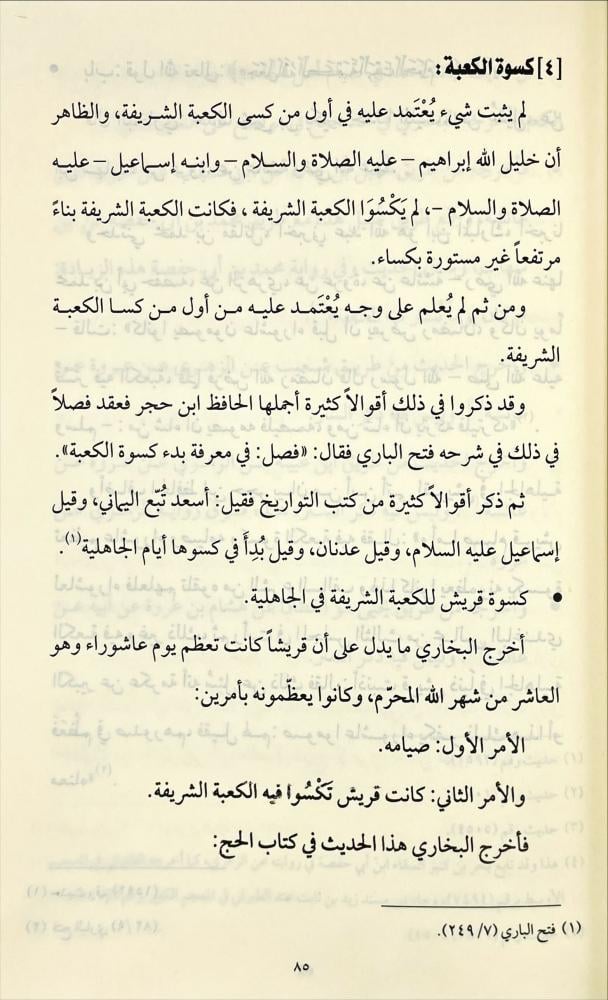 [٤] كسوة الكعبة:
لم يثبت شيء يُعْتَمد عليه في أول من كسى الكعبة الشريفة، والظاهر
أن خليل الله إبراهيم – عليه الصلاة والسلام – وابنه إسماعيل – عليه
الصلاة والسلام –، لم يَكْسُوَا الكعبة الشريفة ، فكانت الكعبة الشريفة بناءً
مرتفعاً غير مستورة بكساء.
ومن ثم لم يُعلم على وجه يُعْتَمد عليه من أول من كسا الكعبة
الشريفة.
وقد ذكروا في ذلك أقوالاً كثيرة أجملها الحافظ ابن حجر فعقد فصلاً
في ذلك في شرحه فتح الباري فقال: «فصل: في معرفة بدء كسوة الكعبة».
ثم ذكر أقوالاً كثيرة من كتب التواريخ فقيل: أسعد تُبّع اليماني، وقيل
إسماعيل عليه السلام، وقيل عدنان، وقيل بُدِأَ في كسوها أيام الجاهلية(١).
• كسوة قريش للكعبة الشريفة في الجاهلية.
أخرج البخاري ما يدل على أن قريشاً كانت تعظم يوم عاشوراء وهو
العاشر من شهر الله المحرّم، وكانوا يعظّمونه بأمرين:
الأمر الأول: صيامه.
والأمر الثاني: كانت قريش تَكْسُوا فيه الكعبة الشريفة.
فأخرج البخاري هذا الحديث في كتاب الحج:
(١) فتح الباري (٢٤٩/٧).
٨٥